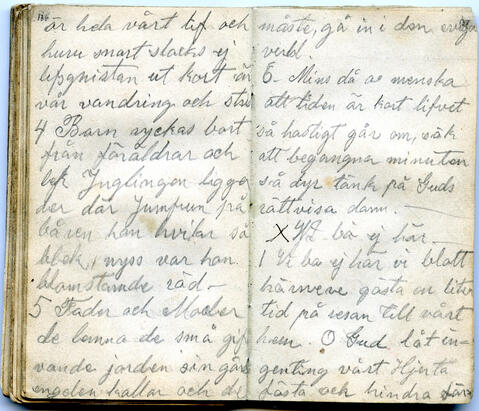 136
är hela vårt lif och
huru snart slacks ej
lifsgnistan ut kort är
vår vandring och strid
4 Barn ryckas bort
från föräldrar och
lek Ynglingen ligger
der där Jumfrun på
båren han hvilar så
blek, nyss var han
blomstrande röd –
5 Fader och Moder
de lemna de små gif
vande jorden sin gärd
engelen kallar och de
måste, gå in i den evga
verld.
6 Mins då o menska
att tiden är kort lifvet
så hastigt går om, väk
att begagna minuten
så dyr tänk på Guds
rättvisa dom. –
X Vi bo ej här –
1 Vi bo ej här vi blott
härneve gästa en liten
tid på resan till vårt
hem. O Gud låt in-
genting vårt Hjerta
fästa och hindra